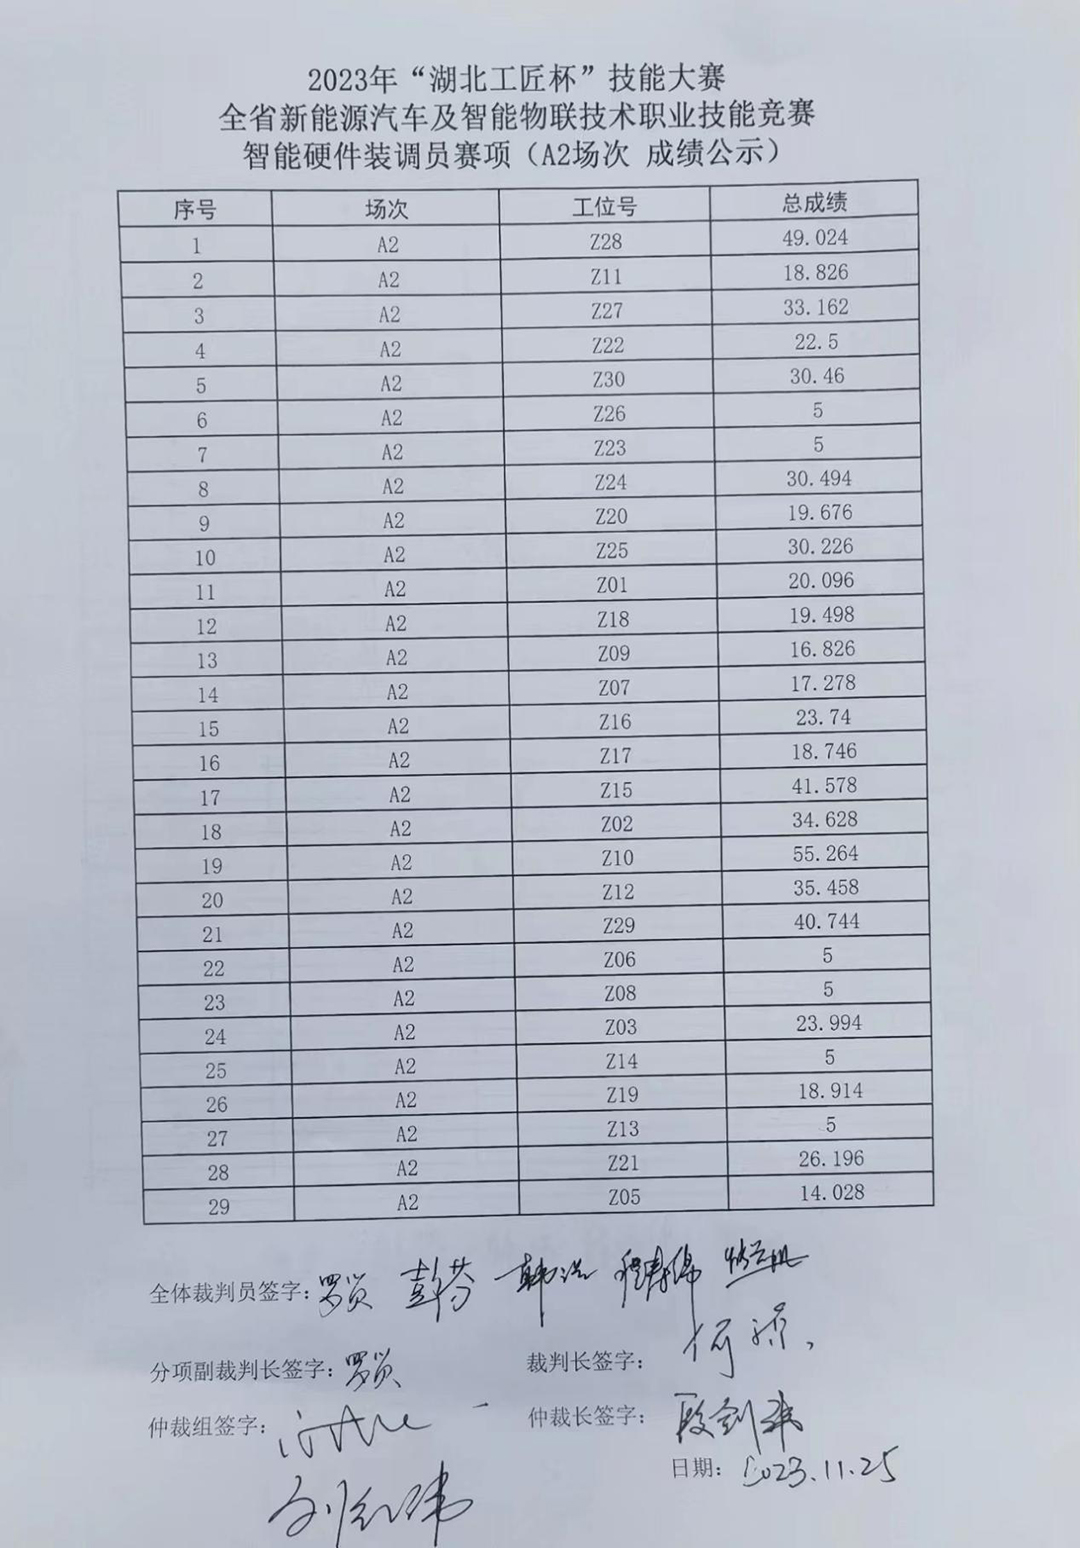 2023年“湖北工匠杯”技能大赛
全省新能源汽车及智能物联技术职业技能竞赛
智能硬件装调员赛项（A2场次 成绩公示）
序号 场次 工位号 总成绩
1 A2 Z28 49.024
2 A2 Z11 18.826
3 A2 Z27 33.162
4 A2 Z22 22.5
5 A2 Z30 30.46
6 A2 Z26 5
7 A2 Z23 5
8 A2 Z24 30.494
9 A2 Z20 19.676
10 A2 Z25 30.226
11 A2 Z01 20.096
12 A2 Z18 19.498
13 A2 Z09 16.826
14 A2 Z07 17.278
15 A2 Z16 23.74
16 A2 Z17 18.746
17 A2 Z15 41.578
18 A2 Z02 34.628
19 A2 Z10 55.264
20 A2 Z12 35.458
21 A2 Z29 40.744
22 A2 Z06 5
23 A2 Z08 5
24 A2 Z03 23.994
25 A2 Z14 5
26 A2 Z19 18.914
27 A2 Z13 5
28 A2 Z21 26.196
29 A2 Z05 14.028
全体裁判员签字： 彭芬
分项副裁判长签字： 裁判长签字：
仲裁组签字： 仲裁长签字： 段剑
日期： 2023.11.25